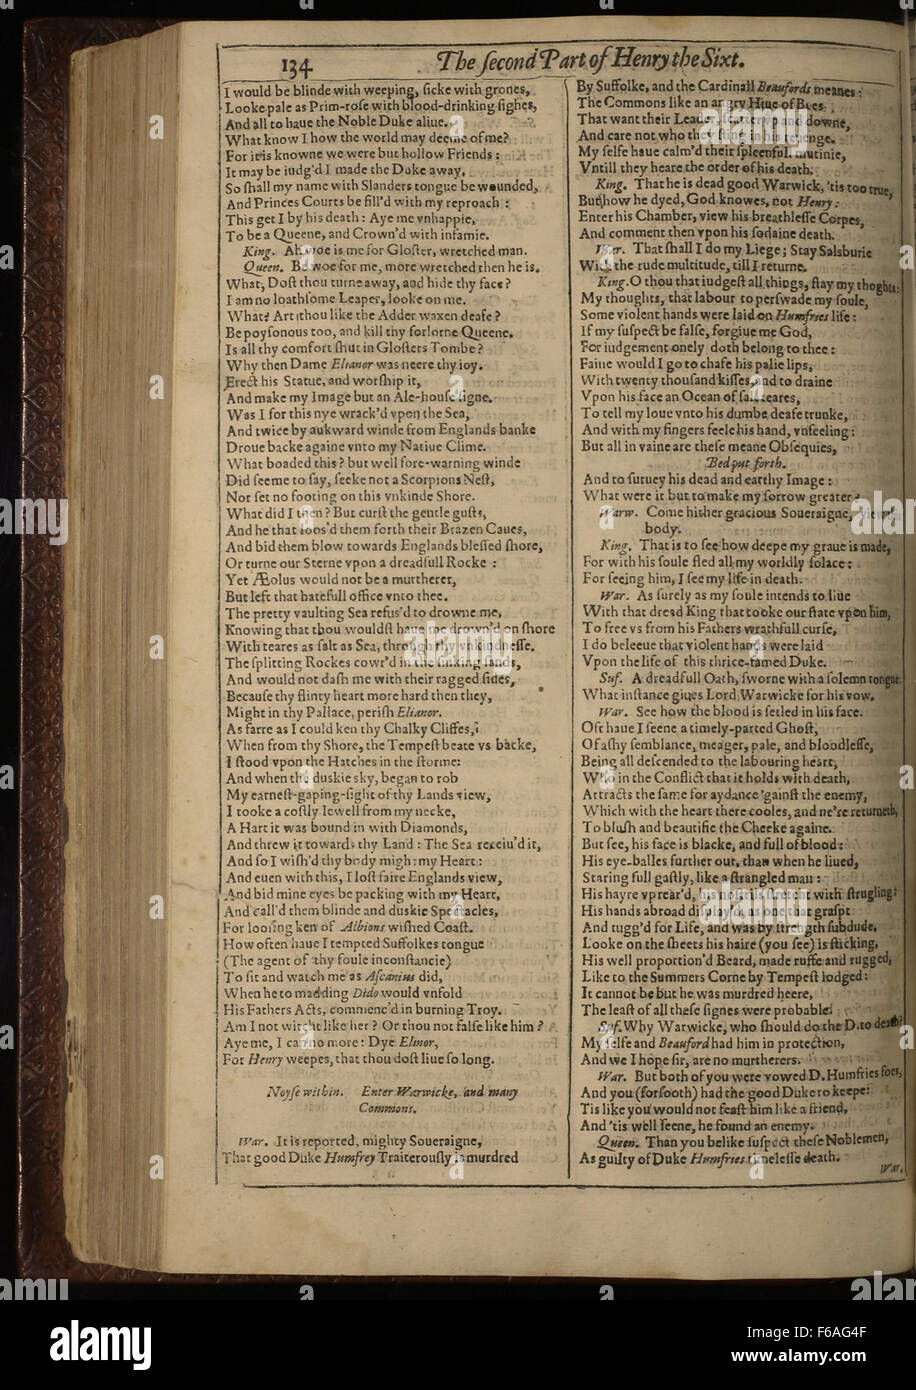 134 The ſecond Part of Henry the Sixt.
I would be blinde with weeping, ſicke with grones,
Looke pale as Prim-roſe with blood-drinking ſighes,
And all to haue the Noble Duke aliue.
What know I how the world may deeme of me?
For it is knowne we were but hollow Friends:
It may be iudg'd I made the Duke away,
So ſhall my name with Slanders tongue be wounded,
And Princes Courts be fill'd with my reproach:
This get I by his death: Aye me vnhappie,
To be a Queene, and Crown'd with infamie.
King. Ah woe is me for Gloſter, wretched man.
Queen. Be woe for me, more wretched then he is.
What, Doſt thou turne away, and hide thy face?
I am no loathſome Leaper, looke on me.
What? Art thou like the Adder waxen deafe?
Be poyſonous too, and kill thy forlorne Queene.
Is all thy comfort ſhut in Gloſters Tombe?
Why then Dame Elianor was neere thy ioy.
Erect his Statue, and worſhip it,
And make my Image but an Ale-houſe ſigne.
Was I for this nye wrack'd vpon the Sea,
And twice by aukward winde from Englands banke
Droue backe againe vnto my Natiue Clime.
What boaded this? but well fore-warning winde
Did ſeeme to ſay, ſeeke not a Scorpions Neſt,
Nor ſet no footing on this vnkinde Shore.
What did I then? But curſt the gentle guſts,
And he that loos'd them forth their Brazen Caues,
And bid them blow towards Englands bleſſed ſhore,
Or turne our Sterne vpon a dreadfull Rocke:
Yet Æolus would not be a murtherer,
But left that hatefull office vnto thee.
The pretty vaulting Sea refus'd to drowne me,
Knowing that thou wouldſt haue me drown'd on ſhore
With teares as ſalt as Sea, through thy vnkindneſſe.
The ſplitting Rockes cowr'd in the ſinking ſands,
And would not daſh me with their ragged ſides,
Becauſe thy flinty heart more hard then they,
Might in thy Pallace, periſh Elianor.
As farre as I could ken thy Chalky Cliffes,
When from thy Shore, the Tempeſt beate vs backe,
I ſtood vpon the Hatches in the ſtorme:
And when the duskie sky, began to rob
My earneſt-gaping-ſight of thy Lands view,
I tooke a coſtly Iewell from my necke,
A Hart it was bound in with Diamonds,
And threw it towards thy Land: The Sea receiu'd it,
And ſo I wiſh'd thy body might my Heart:
And euen with this, I loſt faire Englands view,
And bid mine eyes be packing with my Heart,
And call'd them blinde and duskie Spectacles,
For looſing ken of Albions wiſhed Coaſt.
How often haue I tempted Suffolkes tongue
(The agent of thy foule inconſtancie)
To ſit and watch me as Aſcanius did,
When he to madding Dido would vnfold
His Fathers Acts, commenc'd in burning Troy.
Am I not witcht like her? Or thou not falſe like him?
Aye me, I can no more: Dye Elinor,
For Henry weepes, that thou doſt liue ſo long.
Noyſe within. Enter Warwicke, and many
Commons.
War. It is reported, mighty Soueraigne,
That good Duke Humfrey Traiterouſly is murdred
By Suffolke, and the Cardinall Beaufords meanes:
The Commons like an angry Hiue of Bees
That want their Leader, ſcatter vp and downe,
And care not who they ſting in his reuenge.
My ſelfe haue calm'd their ſpleenfull mutinie,
Vntill they heare the order of his death.
King. That he is dead good Warwick, 'tis too true,
But how he dyed, God knowes, not Henry:
Enter his Chamber, view his breathleſſe Corpes,
And comment then vpon his ſodaine death.
War. That ſhall I do my Liege; Stay Salsburie
With the rude multitude, till I returne.
King. O thou that iudgeſt all things, ſtay my thoghts:
My thoughts, that labour to perſwade my ſoule,
Some violent hands were laid on Humfries life:
If my ſuſpect be falſe, forgiue me God,
For iudgement onely doth belong to thee:
Faine would I go to chafe his palie lips,
With twenty thouſand kiſſes, and to draine
Vpon his face an Ocean of ſalt teares,
To tell my loue vnto his dumbe deafe trunke,
And with my fingers feele his hand, vnfeeling:
But all in vaine are theſe meane Obſequies,
Bed put forth.
And to ſuruey his dead and earthy Image:
What were it but to make my ſorrow greater?
Warw. Come hither gracious Soueraigne, view this
body.
King. That is to ſee how deepe my graue is made,
For with his ſoule fled all my worldly ſolace:
For ſeeing him, I ſee my life in death.
War. As ſurely as my ſoule intends to liue
With that dread King that tooke our ſtate vpon him,
To free vs from his Fathers wrathfull curſe,
I do beleeue that violent hands were laid
Vpon the life of this thrice-famed Duke.
Suf. A dreadfull Oath, ſworne with a ſolemn tongue:
What inſtance giues Lord Warwicke for his vow.
War. See how the blood is ſetled in his face.
Oft haue I ſeene a timely-parted Ghoſt,
Of aſhy ſemblance, meager, pale, and bloodleſſe,
Being all deſcended to the labouring heart,
Who in the Conflict that it holds with death,
Attracts the ſame for aydance 'gainſt the enemy,
Which with the heart there cooles, and ne're returneth,
To bluſh and beautifie the Cheeke againe.
But ſee, his face is blacke, and full of blood:
His eye-balles further out, than when he liued,
Staring full gaſtly, like a ſtrangled man:
His hayre vprear'd, his noſtrils ſtretcht with ſtrugling:
His hands abroad diſplay'd, as one that graſpt
And tugg'd for Life, and was by ſtrength ſubdude.
Looke on the ſheets his haire (you ſee) is ſticking,
His well proportion'd Beard, made ruffe and rugged,
Like to the Summers Corne by Tempeſt lodged:
It cannot be but he was murdred heere,
The leaſt of all theſe ſignes were probable.
Suf. Why Warwicke, who ſhould do the D. to death?
My ſelfe and Beauford had him in protection,
And we I hope ſir, are no murtherers.
War. But both of you were vowed D. Humfries foes,
And you (forſooth) had the good Duke to keepe:
Tis like you would not feaſt him like a friend,
And 'tis well ſeene, he found an enemy.
Queen. Than you belike ſuſpect theſe Noblemen,
As guilty of Duke Humfries timeleſſe death.
War.
alamy
Image ID: F6AG4F
www.alamy.com